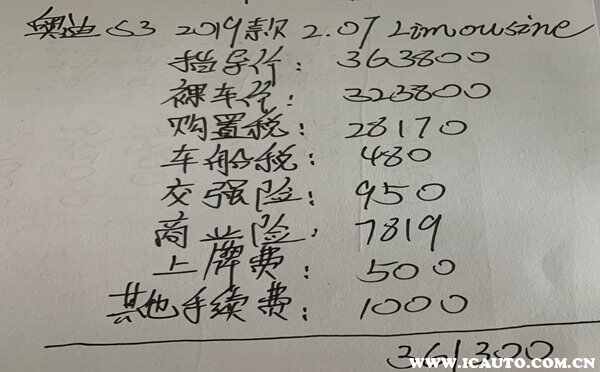 奥迪 S3 2019款 2.0T Limousine
指导价: 363800
裸车价: 323800
购置税: 28170
车船税: 480
交强险: 950
商业险: 7819
上牌费: 500
其他手续费: 1000
361300
WWW.ICAUTO.COM.CN